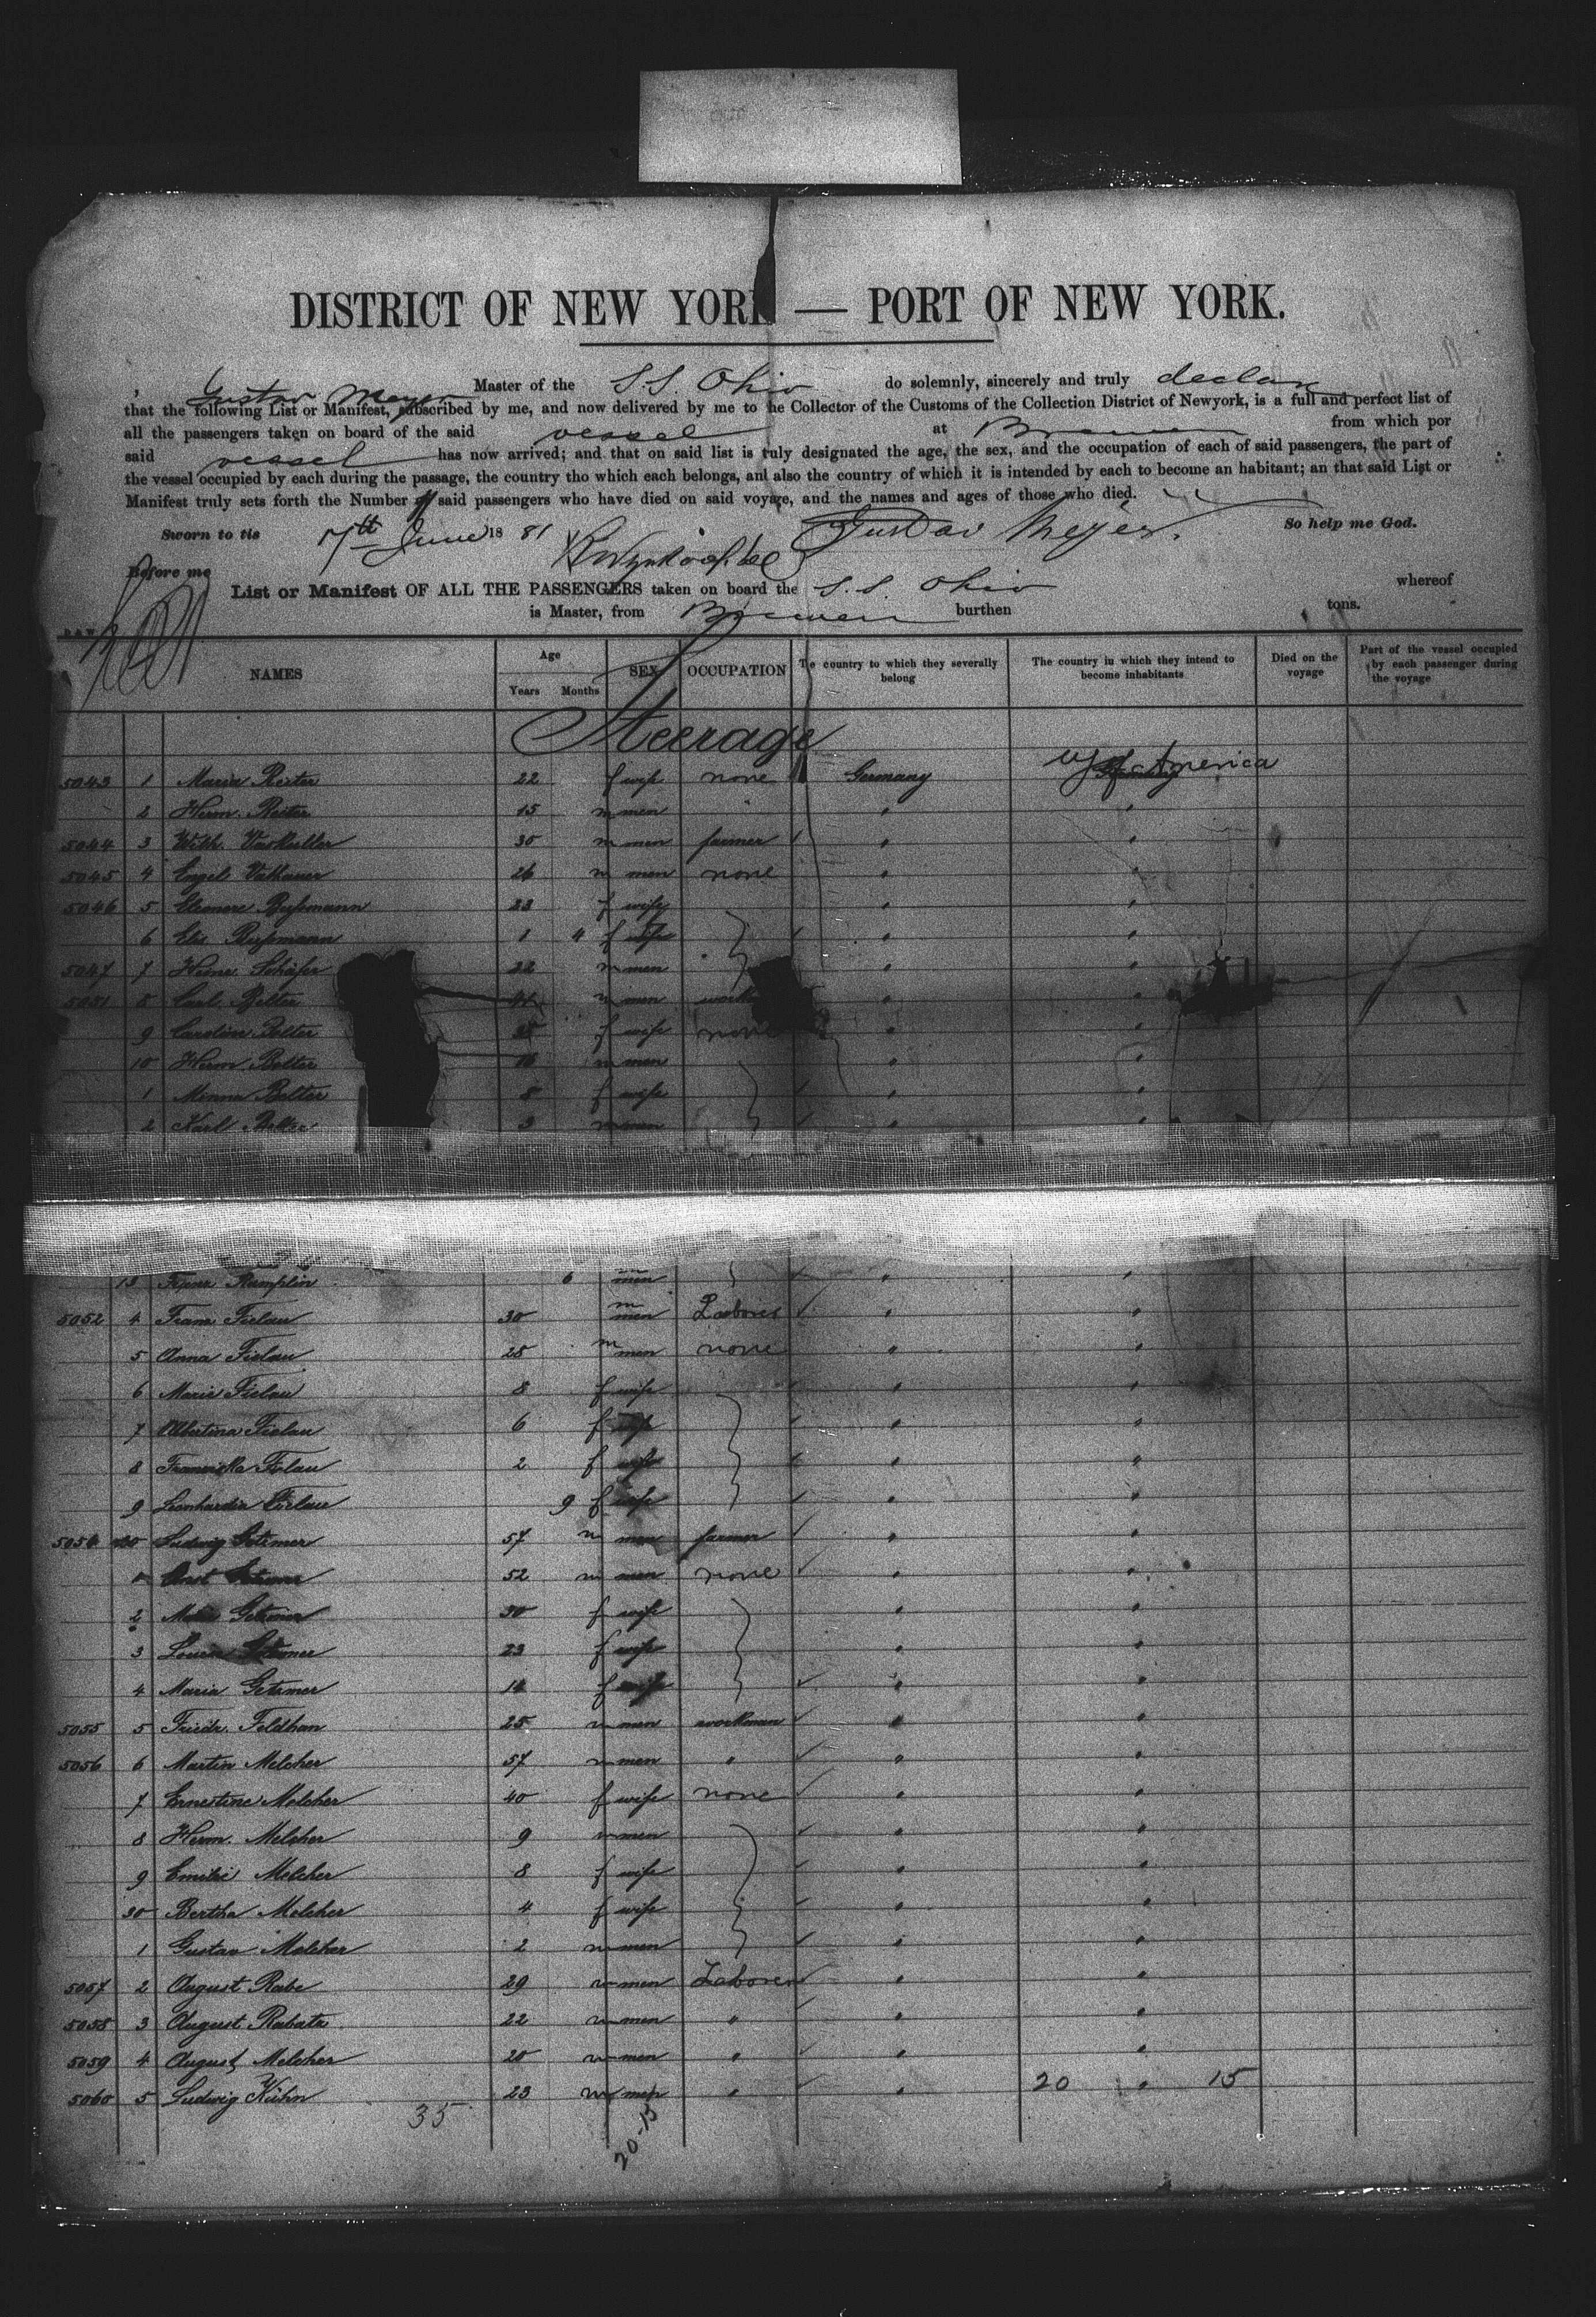 DISTRICT OF NEW YORK — PORT OF NEW YORK.
, Gustav Meyer Master of the S.S. Ohio do solemnly, sincerely and truly declare
that the following List or Manifest, subscribed by me, and now delivered by me to he Collector of the Customs of the Collection District of Newyork, is a full and perfect list of
all the passengers taken on board of the said vessel at Bremen from which por
said vessel has now arrived; and that on said list is truly designated the age, the sex, and the occupation of each of said passengers, the part of
the vessel occupied by each during the passage, the country tho which each belongs, and also the country of which it is intended by each to become an habitant; an that said List or
Manifest truly sets forth the Number of said passengers who have died on said voyage, and the names and ages of those who died.
Sworn to tis 17th June 1881 Gustav Meyer. So help me God.
Before me
List or Manifest OF ALL THE PASSENGERS taken on board the S.S. Ohio whereof
is Master, from Bremen burthen tons.
NAMES Age Years Months SEX OCCUPATION Te country to which they severally belong The country in which they intend to become inhabitants Died on the voyage Part of the vessel occupied by each passenger during the voyage
Steerage
5043 1 Maria Reiter 22 f wife none Germany U S of America
2 Herm. Reiter 15 m men " "
5044 3 Wilh. 30 m men farmer " "
5045 4 Engel 26 m men none " "
5046 5 Eleonore Bußmann 23 f wife " "
6 Elis Bußmann 1 4 f wife " "
5047 7 Heinr. Schäfer 22 m men " "
5051 8 Carl Belter m men " "
9 Carolin Belter f wife none " "
10 Herm Belter m men " "
1 Minna Belter 8 f wife " "
2 Karl Belter 3 m men " "
13 Franz Ramplin 6 m men " "
5052 4 Franz Fielau 30 m men Laborer " "
5 Anna Fielau 25 m men none " "
6 Marie Fielau 8 f wife " "
7 Albertina Fielau 6 f wife " "
8 Franziska Fielau 2 f wife " "
9 Leonhardia Fielau 9 f wife " "
5054 20 Ludwig Getzmer 57 m men farmer " "
52 m men none " "
2 Getzmer 30 f wife " "
3 Louise Getzmer 23 f wife " "
4 Maria Getzmer f wife " "
5055 5 Friedr. Feldhan 25 m men workman " "
5056 6 Martin Melcher 57 m men " " "
7 Ernestine Melcher 40 f wife none " "
8 Herm. Melcher 9 m men " "
9 Emilie Melcher 8 f wife " "
30 Bertha Melcher 4 f wife " "
1 Gustav Melcher 2 m men " "
5057 2 August Rabe 29 m men Laborer " "
5058 3 August Rabata 22 m men " " "
5059 4 August Melcher 20 m men " " "
5060 5 Ludwig Kühn 23 m men " " 20 " 15
35 20-15